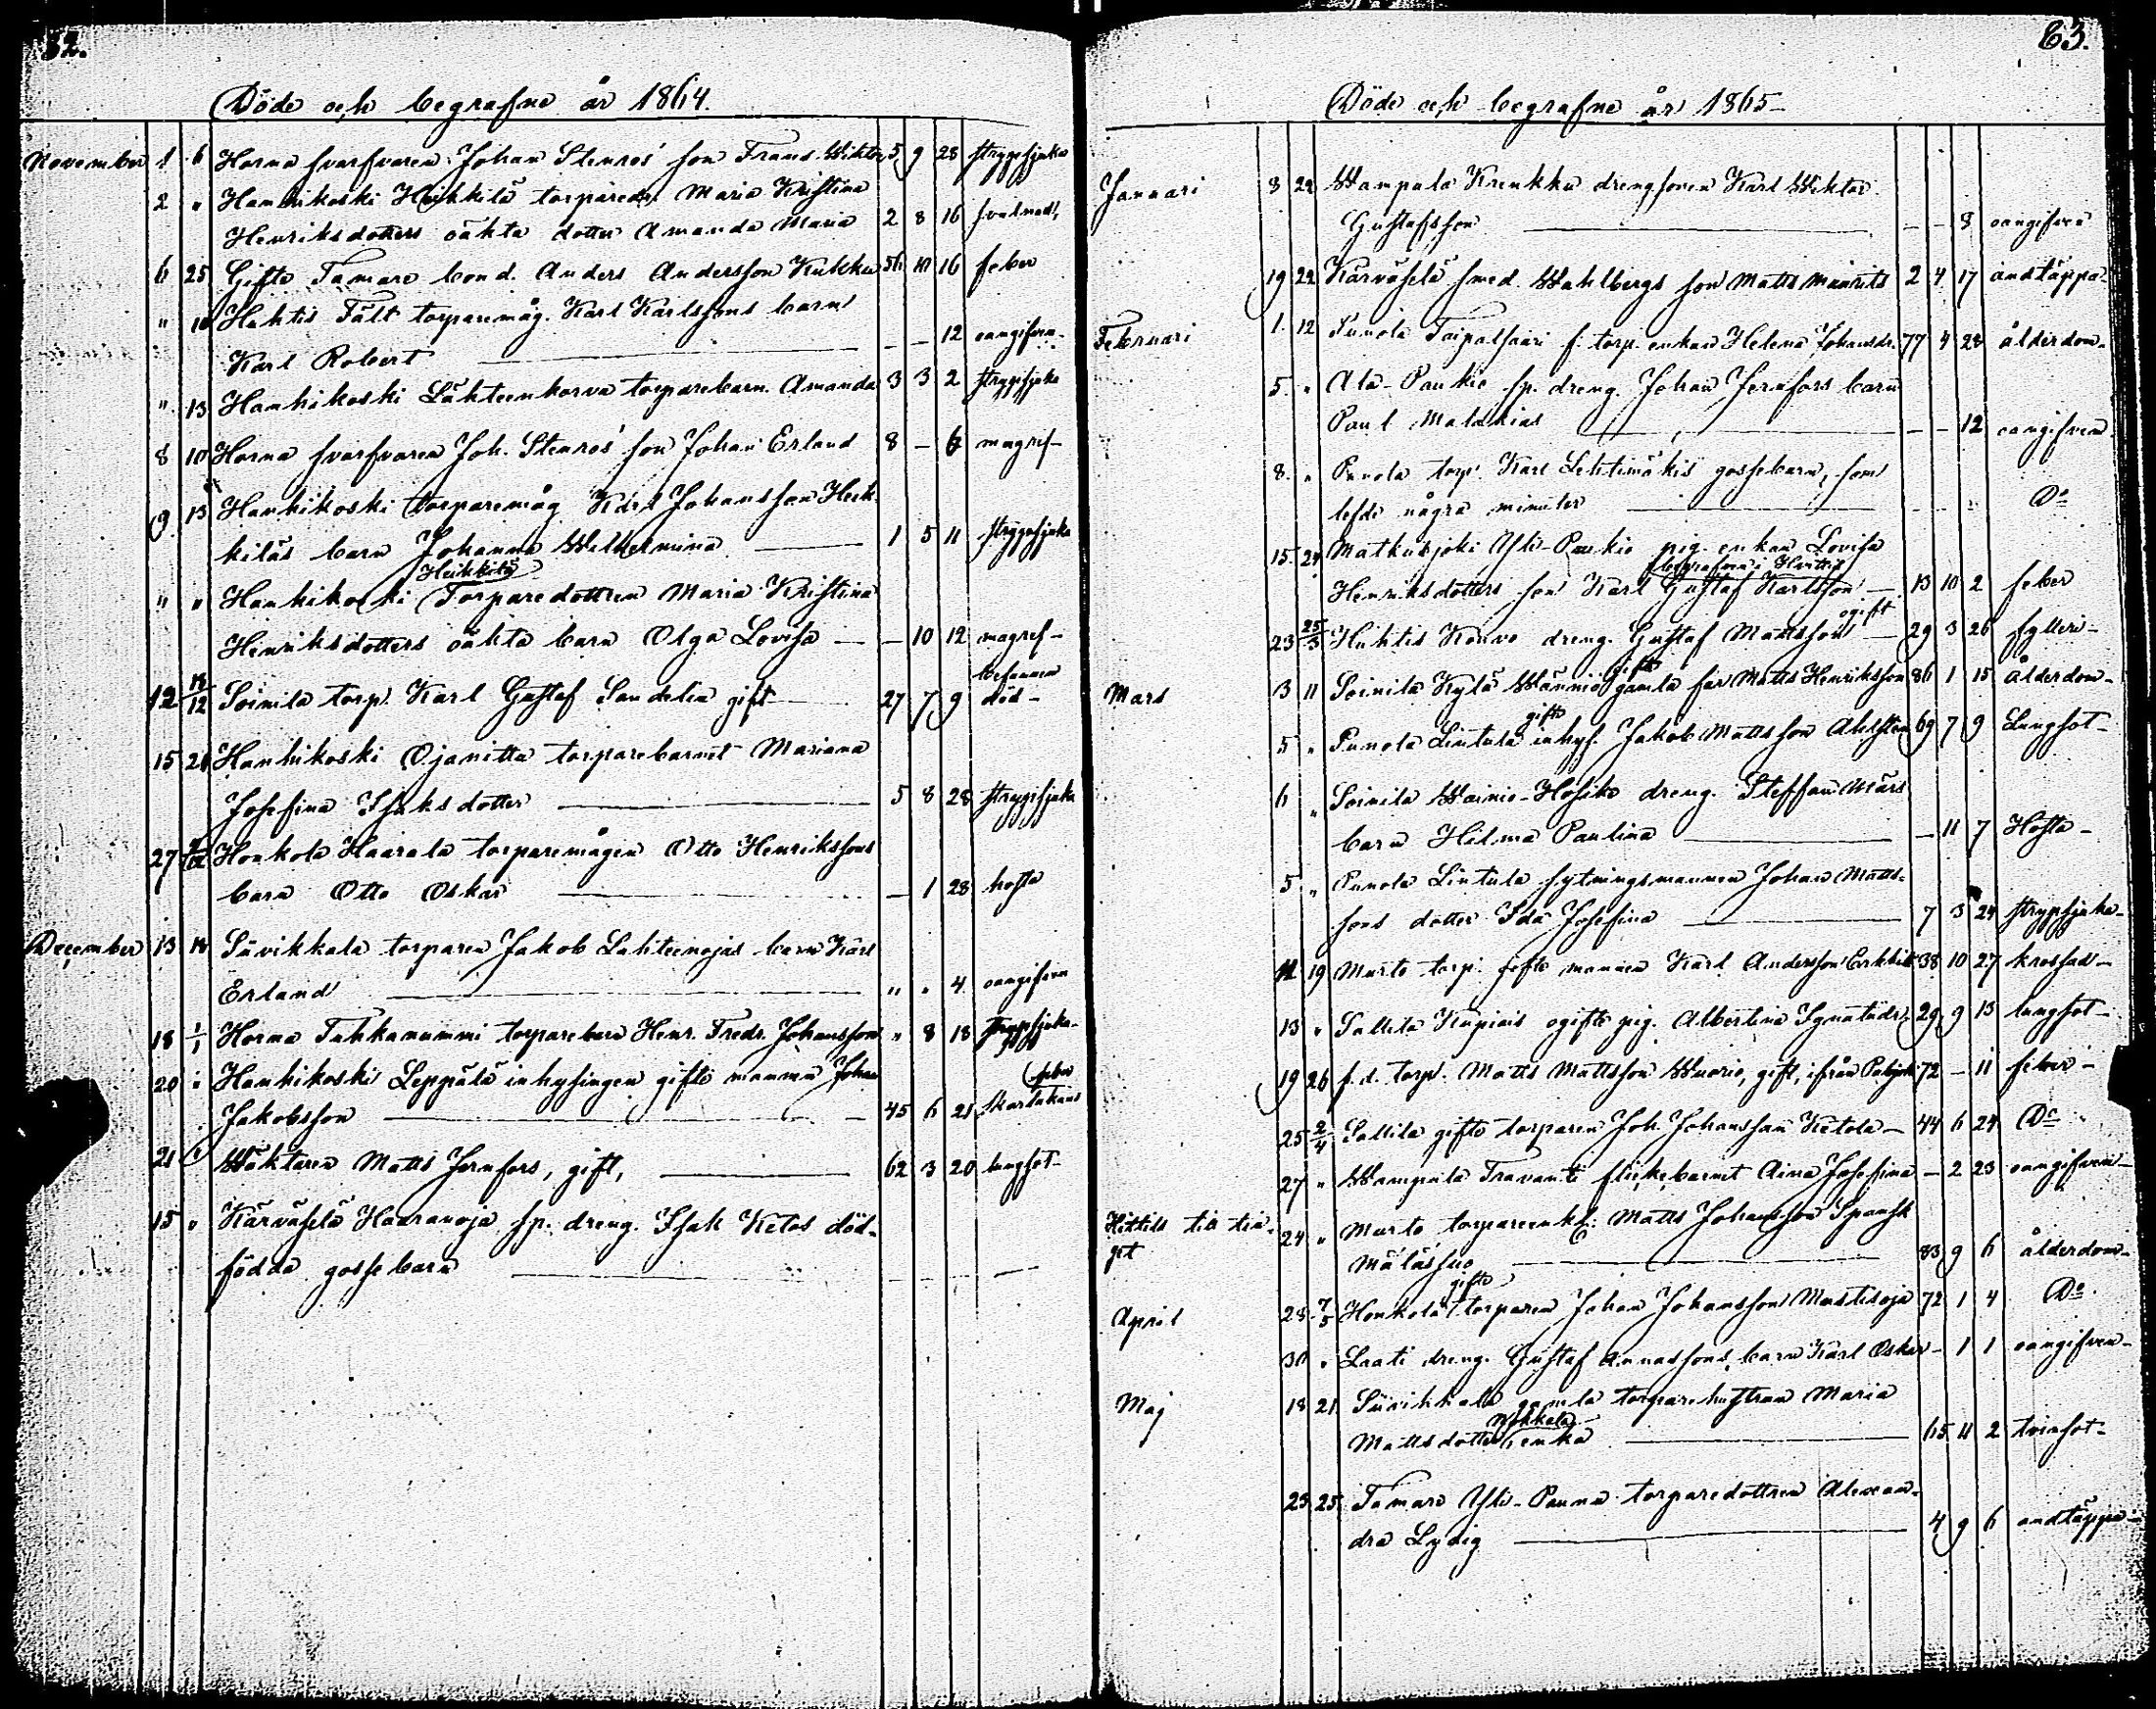 32.
Döde och begrafne år 1864.
November 1 6 Horma svarfvaren Johan Stenros' son Frans Wiktor 5 9 28 strypsjuka
2 " Hanhikoski Heikkilä torparedr Maria Kristina
Henriksdotters oäkta dotter Amanda Maria 2 8 16
6 25 Gifte Tamare bond. Anders Andersson Kukku 56 10 16 feber
" 10 Huhtis Fält torparemåg. Karl Karlssons barn
Karl Robert — — 12 oangifven
" 13 Hanhikoski Lähteenkorva torparebarn Amanda 3 3 2 strypsjuka
8 10 Horma svarfvaren Joh. Stenros' son Johan Erland 8 — 6 magref
9 13 Hanhikoski torparemåg Karl Johansson Heik-
kiläs barn Johanna Wilhelmina 1 5 11 strypsjuka
Heikkilä
" " Hanhikoski Torparedottren Maria Kristina
Henriksdotters oäkta barn Olga Lovisa — 10 12 magref
befunnen
12 18/12 Soinila torp. Karl Gustaf Sandelin gift 27 7 9 död
15 26 Hanhikoski Ojanitta torparebarnet Mariana
Josefina Isaksdotter 5 8 28 strypsjuka
27 Honkola Haarala torparemågen Otto Henrikssons
barn Otto Oskar — 1 28 hosta
December 13 18 Suvikkala torparen Jakob Lähteenojas barn Karl
Erland " " 4 oangifven
18 1/1 Horma Tuhkanummi torparebarn Henr. Fredr. Johansson " 8 18 strypsjuka
20 " Hanhikoski Leppälä inhysingen gifte mannen Johan feber
Jakobsson 45 6 21 skarlakans
21 " Wäktaren Matts Jernfors, gift, 62 3 20 lungsot
15 " Kärväselä Haaranoja sp. dreng. Isak Ketos död-
födda gossebarn — — —
63.
Döde och begrafne år 1865
Januari 8 22 Wampula Krenkku drengsonen Karl Wiktor
Gustafsson — — 3 oangifven
19 22 Kärväselä smed. Wahlbergs son Matts Maurits 2 4 17 andtäppa
Februari 1 12 Punola Taipalsaari f. torp. enkan Helena Johansdr. 77 4 28 ålderdom
5 " Ala-Paukio sp. dreng. Johan Jernfors barn
Paul Malakias — — 12 oangifven
8 " Punola torp. Karl Lehtimäkis gossebarn, som
lefde några minuter Do
15 24 Matkusjoki Yli-Paukio pig. enkan Lovisa
begrafven i Huittis
Henriksdotters son Karl Gustaf Karlsson 13 10 2 feber
ogift
23 25/3 Huhtis Konvo dreng. Gustaf Mattsson 29 3 26 fylleri
gift
Mars 3 11 Soinila Kylä Wänniö gamla far Matts Henriksson 86 1 15 ålderdom
gifte
5 " Punola Lintula inhys. Jakob Mattsson Ahlsten 69 7 9 Lungsot
6 " Soinila Wainio-Hosike dreng. Steffan Mårs
barn Hilma Paulina — 11 7 Hosta
5 " Punola Lintula sytningsmannen Johan Matts-
sons dotter Ida Josefina 7 3 24 strypsjuka
12 19 Murto torp. gifte mannen Karl Andersson Erkkilä 38 10 27 krossad
13 " Sallila Kupiais ogifte pig. Albertina Ignatiidr. 29 9 13 lungsot
19 26 f.d. torp. Matts Mattsson Wuorio, gift, ifrån 72 — 11 feber
25 2/4 Sallila gifte torparen Joh. Johansson Ketola 44 6 24 Do
27 " Wampula Travanti flickebarnet Aina Josefina — 2 23 oangifven
Hittills till tia-
get
24 " Murto torpareenkl. Matts Johansson Spansk
Mälässuo 83 9 6 ålderdom
gifte
April 28 7/5 Honkola torparen Johan Johansson Mustisoja 72 1 4 Do
30 " Laati dreng. Gustaf Annassons barn Karl Oskar — 1 1 oangifven
Maj 18 21 Suvikkala gamla torparehustrun Maria
Nokkala
Mattsdotter enka 65 11 2 tvinsot
23 25 Tamare Yli-Panna torparedottren Alexan-
dra Lydig 4 9 6 andtäppa